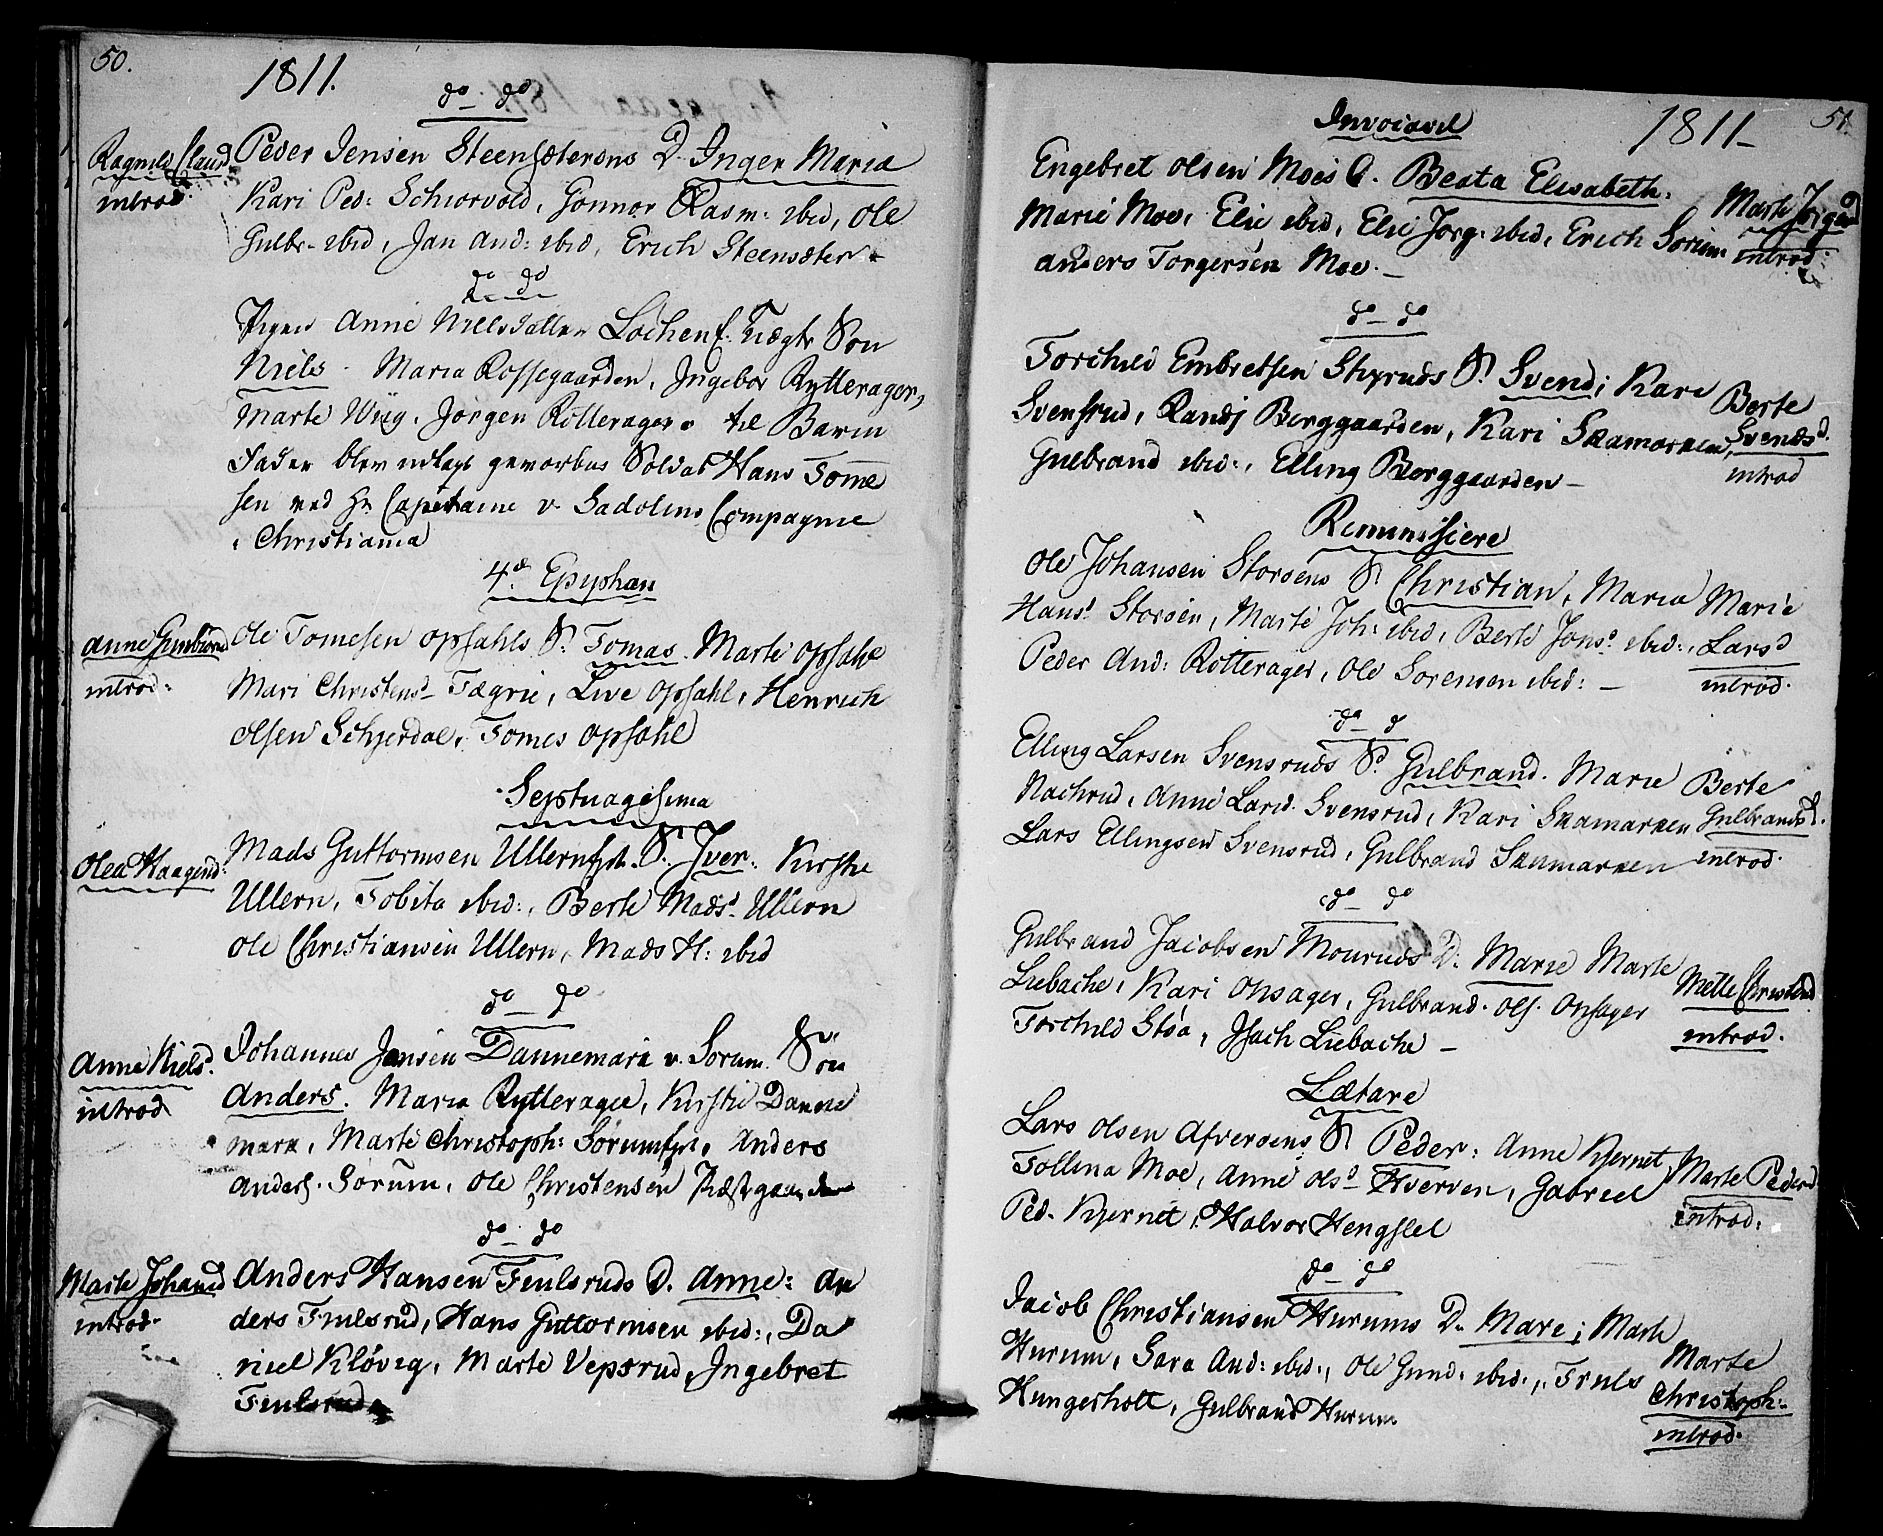 50.
1811.
do - do
Ragnild Clausd.
introd.
Peder Jensen Steensæterens D. Inger Maria
Kari Ped: Schiorvold, Gonnor Rasm: ibid, Ole
Gulbr. ibid, Jan And: ibid, Erich Steensæter
do do
Pigen Anne Nielsdatter Lochen f. Uægte Søn
Niels. Maria Rossegaarden, Ingebor Rytterager,
Marte Wiig, Jørgen Rotterager til Barn
Fader blev udlagt gevorben Soldat Hans Tomme
sen ved Hr. Capitaine v. Sadolins Compagnie
i Christiania
4de Epiphan
Anne Gunbiørnd
introd:
Ole Tomesen Opsahls S. Tomas. Marte Opsahl
Mari Christensd. Fægrie, Live Opsahl, Henrich
Olsen Schjerdal, Tomes Opsahl
Septuagesima
Olea Haagend:
Mads Guttormsen Ullernejet. S. Iver. Kirstie
Ullern, Tobita ibid:, Berte Madsd. Ullern
Ole Christiansen Ullern, Mads H: ibid
do - do
Anne Nielsd.
introd
Johannes Jensen Dannemark v. Sorum. Søn
Anders. Maria Rytterager, Kirstie Danne
mark, Marte Christoph: Sørumejet, Anders
Anders. Sørum, Ole Christensen Præstgaarden
do - do
Marte Johansd
introd.
Anders Hansen Fiulsruds D. Anne: An
ders Fiulsrud, Hans Guttormsen ibid:, Da
niel Kløvig, Marte Vepsrud, Ingebret
Fiulsrud
51.
1811-
Invocavit
Engebret Olsen Moes D. Beata Elisabeth.
Marie Moe, Elie ibid, Elie Jorg: ibid, Erich Soriem
Anders Torgersen Moe. -
Marte Jorgend
introd.
do - do
Torchild Embretsen Styruds S. Svend; Kari
Svensrud, Randj Borggaarden, Kari Skamarken,
Gulbrand ibid:, Elling Borggaarden -
Berte
Svendsd.
introd
Reminisiere
Ole Johansen Storøens S. Christian, Maria
Hansd. Storøen, Marte Joh: ibid, Berte Jonsd. ibid:,
Peder And: Rotterager, Ole Sorensen ibid: -
Marie
Larsd
introd.
do - d
Elling Larsen Svensruds S. Gulbrand. Marie
Nachrud, Anne Larsd. Svensrud, Kari Skamarken
Lars Ellingsen Svensrud, Gulbrand Skamarken
Berte
Gulbrandsd.
introd.
do - do
Gulbrand Jacobsen Mouruds D: Marie Marte
Liebache, Kari Opsager, Gulbrand. Ols. Opsager
Torchild Støa, Isach Liebache -
Mette Christend
introd.
Lætare
Lars Olsen Afversens S. Peder: Anne Kjernet,
Tollina Moe, Anne Olsd Hverven, Gabriel
Ped. Kjernet, Halvor Hengslel
Marte Pedersd
introd:
do - do
Jacob Christiansen Hurums D. Mari; Marte
Hurum, Sara And: ibid:, Ole Gund: ibid:, Truls
Hungerholt, Gulbrand Hurum
Marte
Christoph:
introd.